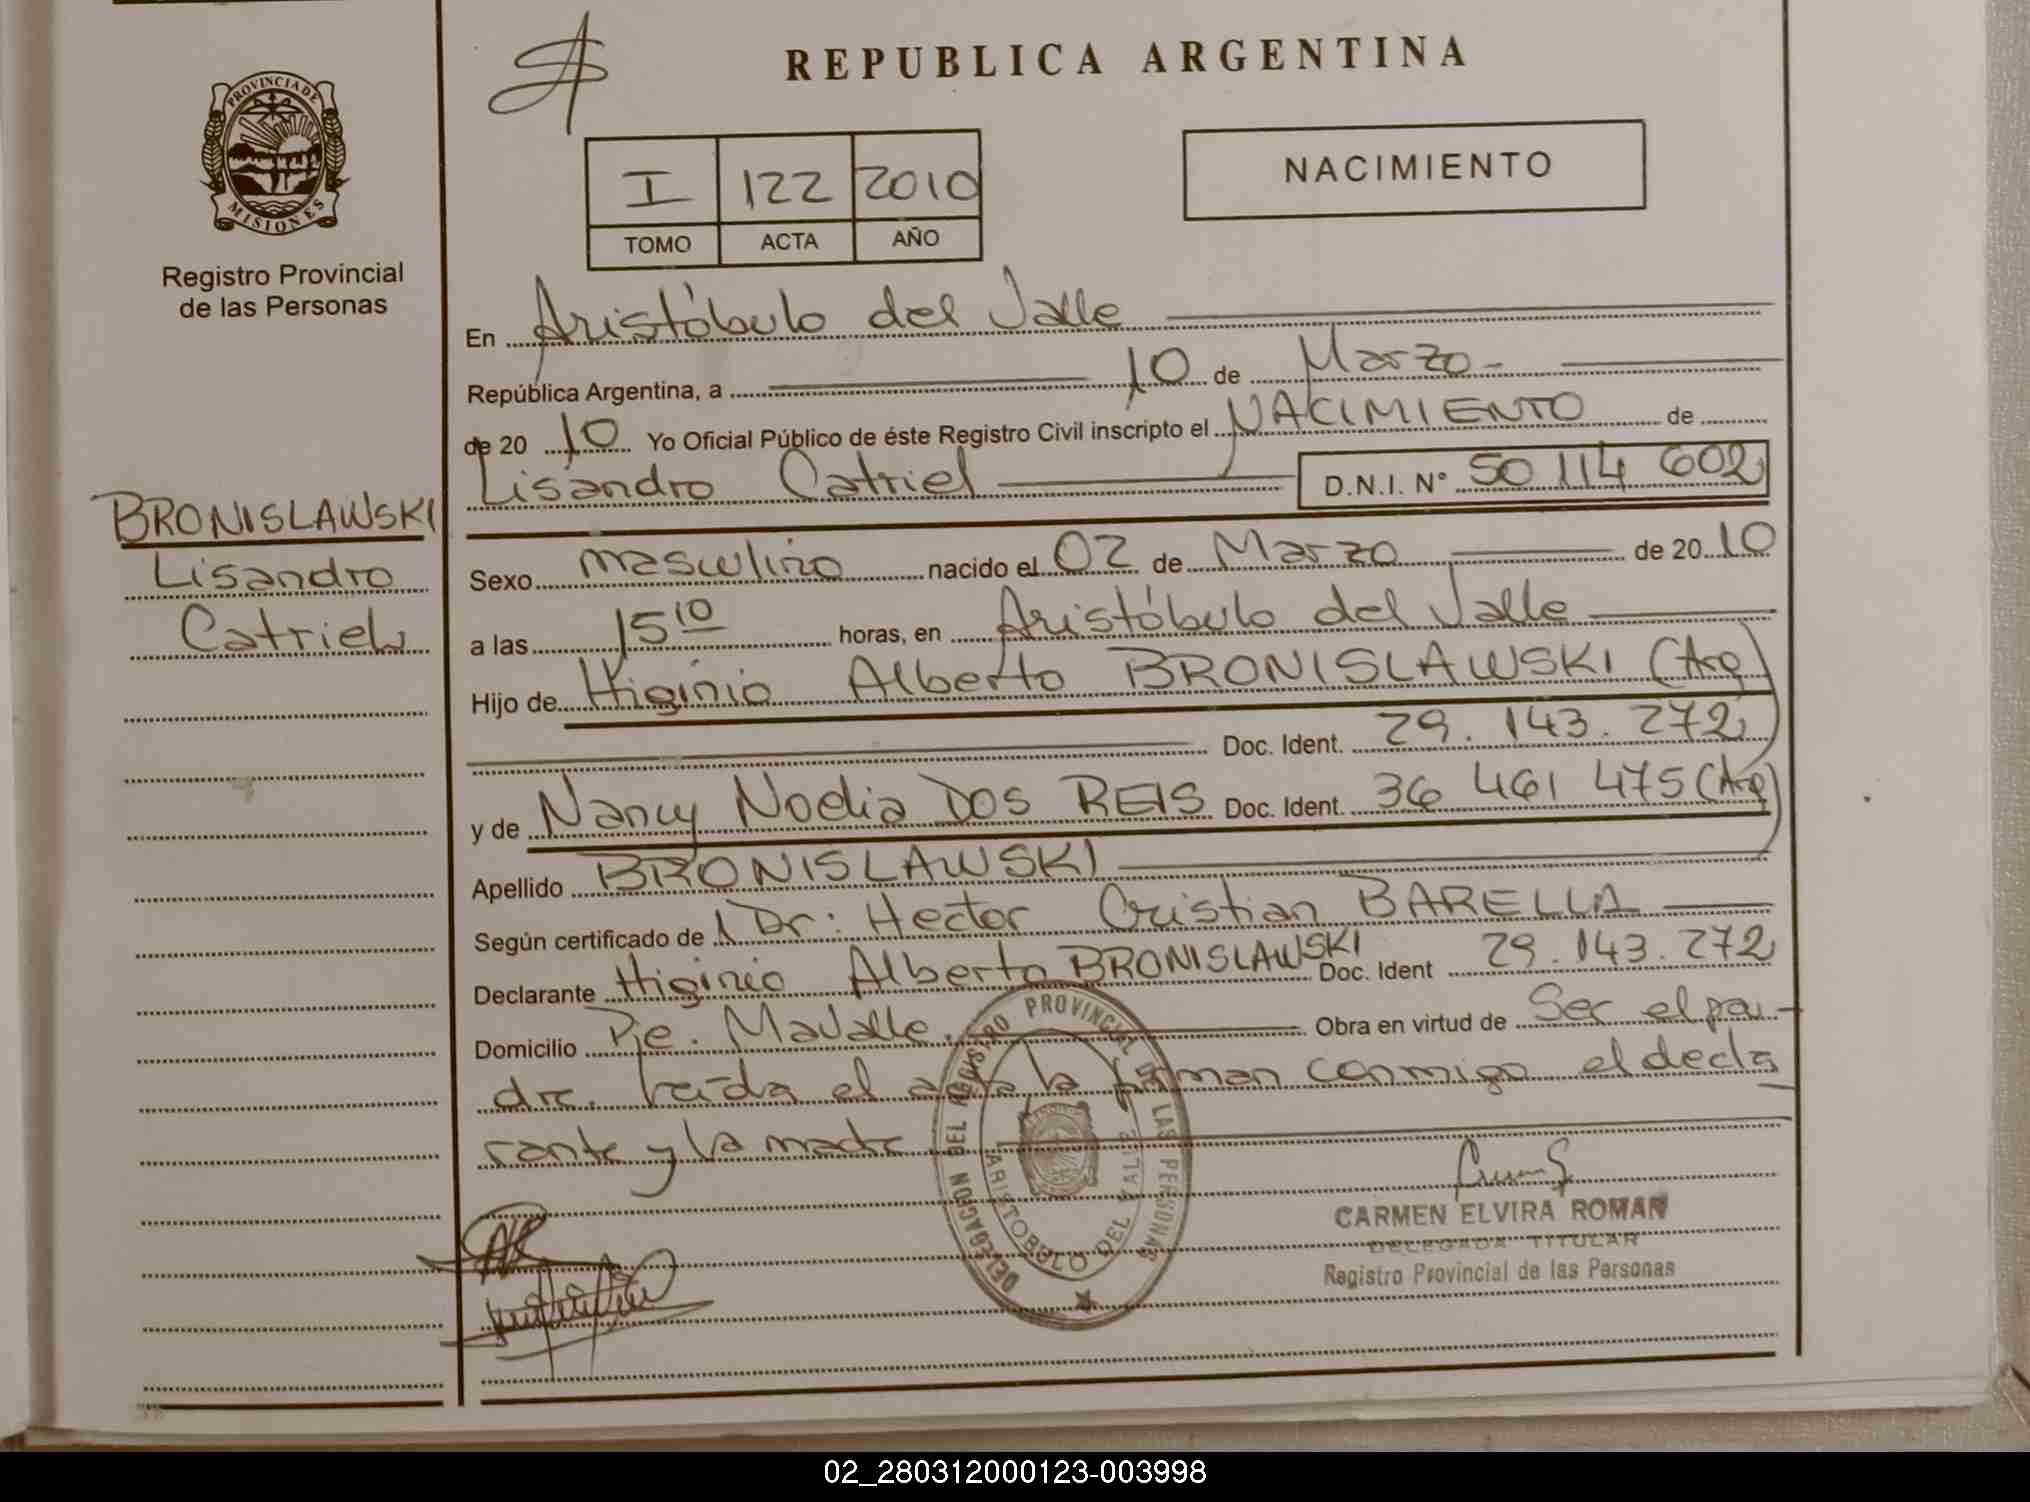 REPUBLICA ARGENTINA
PROVINCIA DE
MISIONES
Registro Provincial
de las Personas
I 122 2010
TOMO ACTA AÑO
NACIMIENTO
En Aristóbulo del Valle
República Argentina, a 10 de Marzo
de 20 10 Yo Oficial Público de éste Registro Civil inscripto el NACIMIENTO de
Lisandro Catriel D.N.I. N° 50 114 602
BRONISLAWSKI
Lisandro
Catriel
Sexo masculino nacido el 02 de Marzo de 20 10
a las 15 10 horas, en Aristóbulo del Valle
Hijo de Higinio Alberto BRONISLAWSKI (Arg)
Doc. Ident. 29.143.272
y de Nancy Noelia DOS REIS Doc. Ident. 36 461 475 (Arg)
Apellido BRONISLAWSKI
Según certificado de Dr: Hector Cristian BARELLA
Declarante Higinio Alberto BRONISLAWSKI Doc. Ident 29.143.272
Domicilio Pje. Mavalle. Obra en virtud de Ser el pa-
dre. Leída el acta la firman conmigo el decla
rante y la madre
DELEGACION DEL REGISTRO PROVINCIAL DE LAS PERSONAS
ARISTOBULO DEL VALLE
CARMEN ELVIRA ROMAN
DELEGADA TITULAR
Registro Provincial de las Personas
02_280312000123-003998